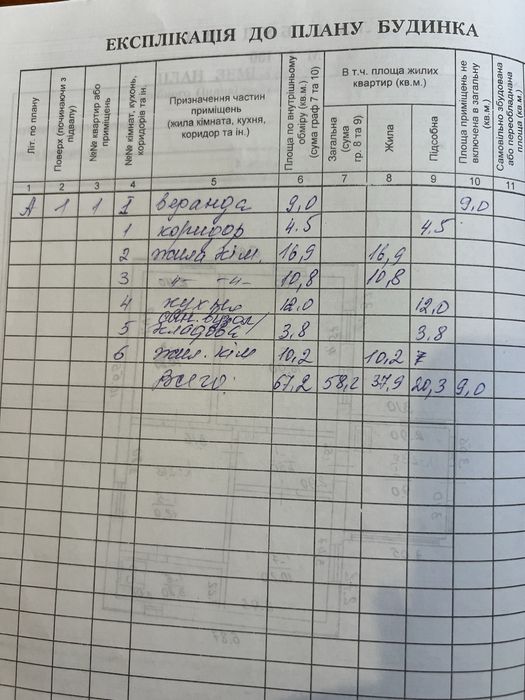 ЕКСПЛІКАЦІЯ ДО ПЛАНУ БУДИНКА
Літ. по плану
Поверх (починаючи з підвалу)
№№ квартир або приміщень
№№ кімнат, кухонь, коридорів та ін.
Призначення частин приміщень (жила кімната, кухня, коридор та ін.)
Площа по внутрішньому обміру (кв.м.) (сума граф 7 та 10)
В т.ч. площа жилих квартир (кв.м.)
Загальна (сума гр. 8 та 9)
Жила
Підсобна
Площа приміщень не включена в загальну (кв.м.)
Самовільно збудована або переобладнана площа (кв.м.)
1 2 3 4 5 6 7 8 9 10 11
А 1 1 I веранда 9,0 9,0
1 коридор 4.5 4.5
2 жила кім. 16,9 16,9
3 -"- -"- 10,8 10,8
4 кухня 12.0 12.0
5 сан. вузол/ кладова 3,8 3,8
6 жил. кім 10,2 10,2
Всего: 67,2 58,2 37,9 20,3 9,0